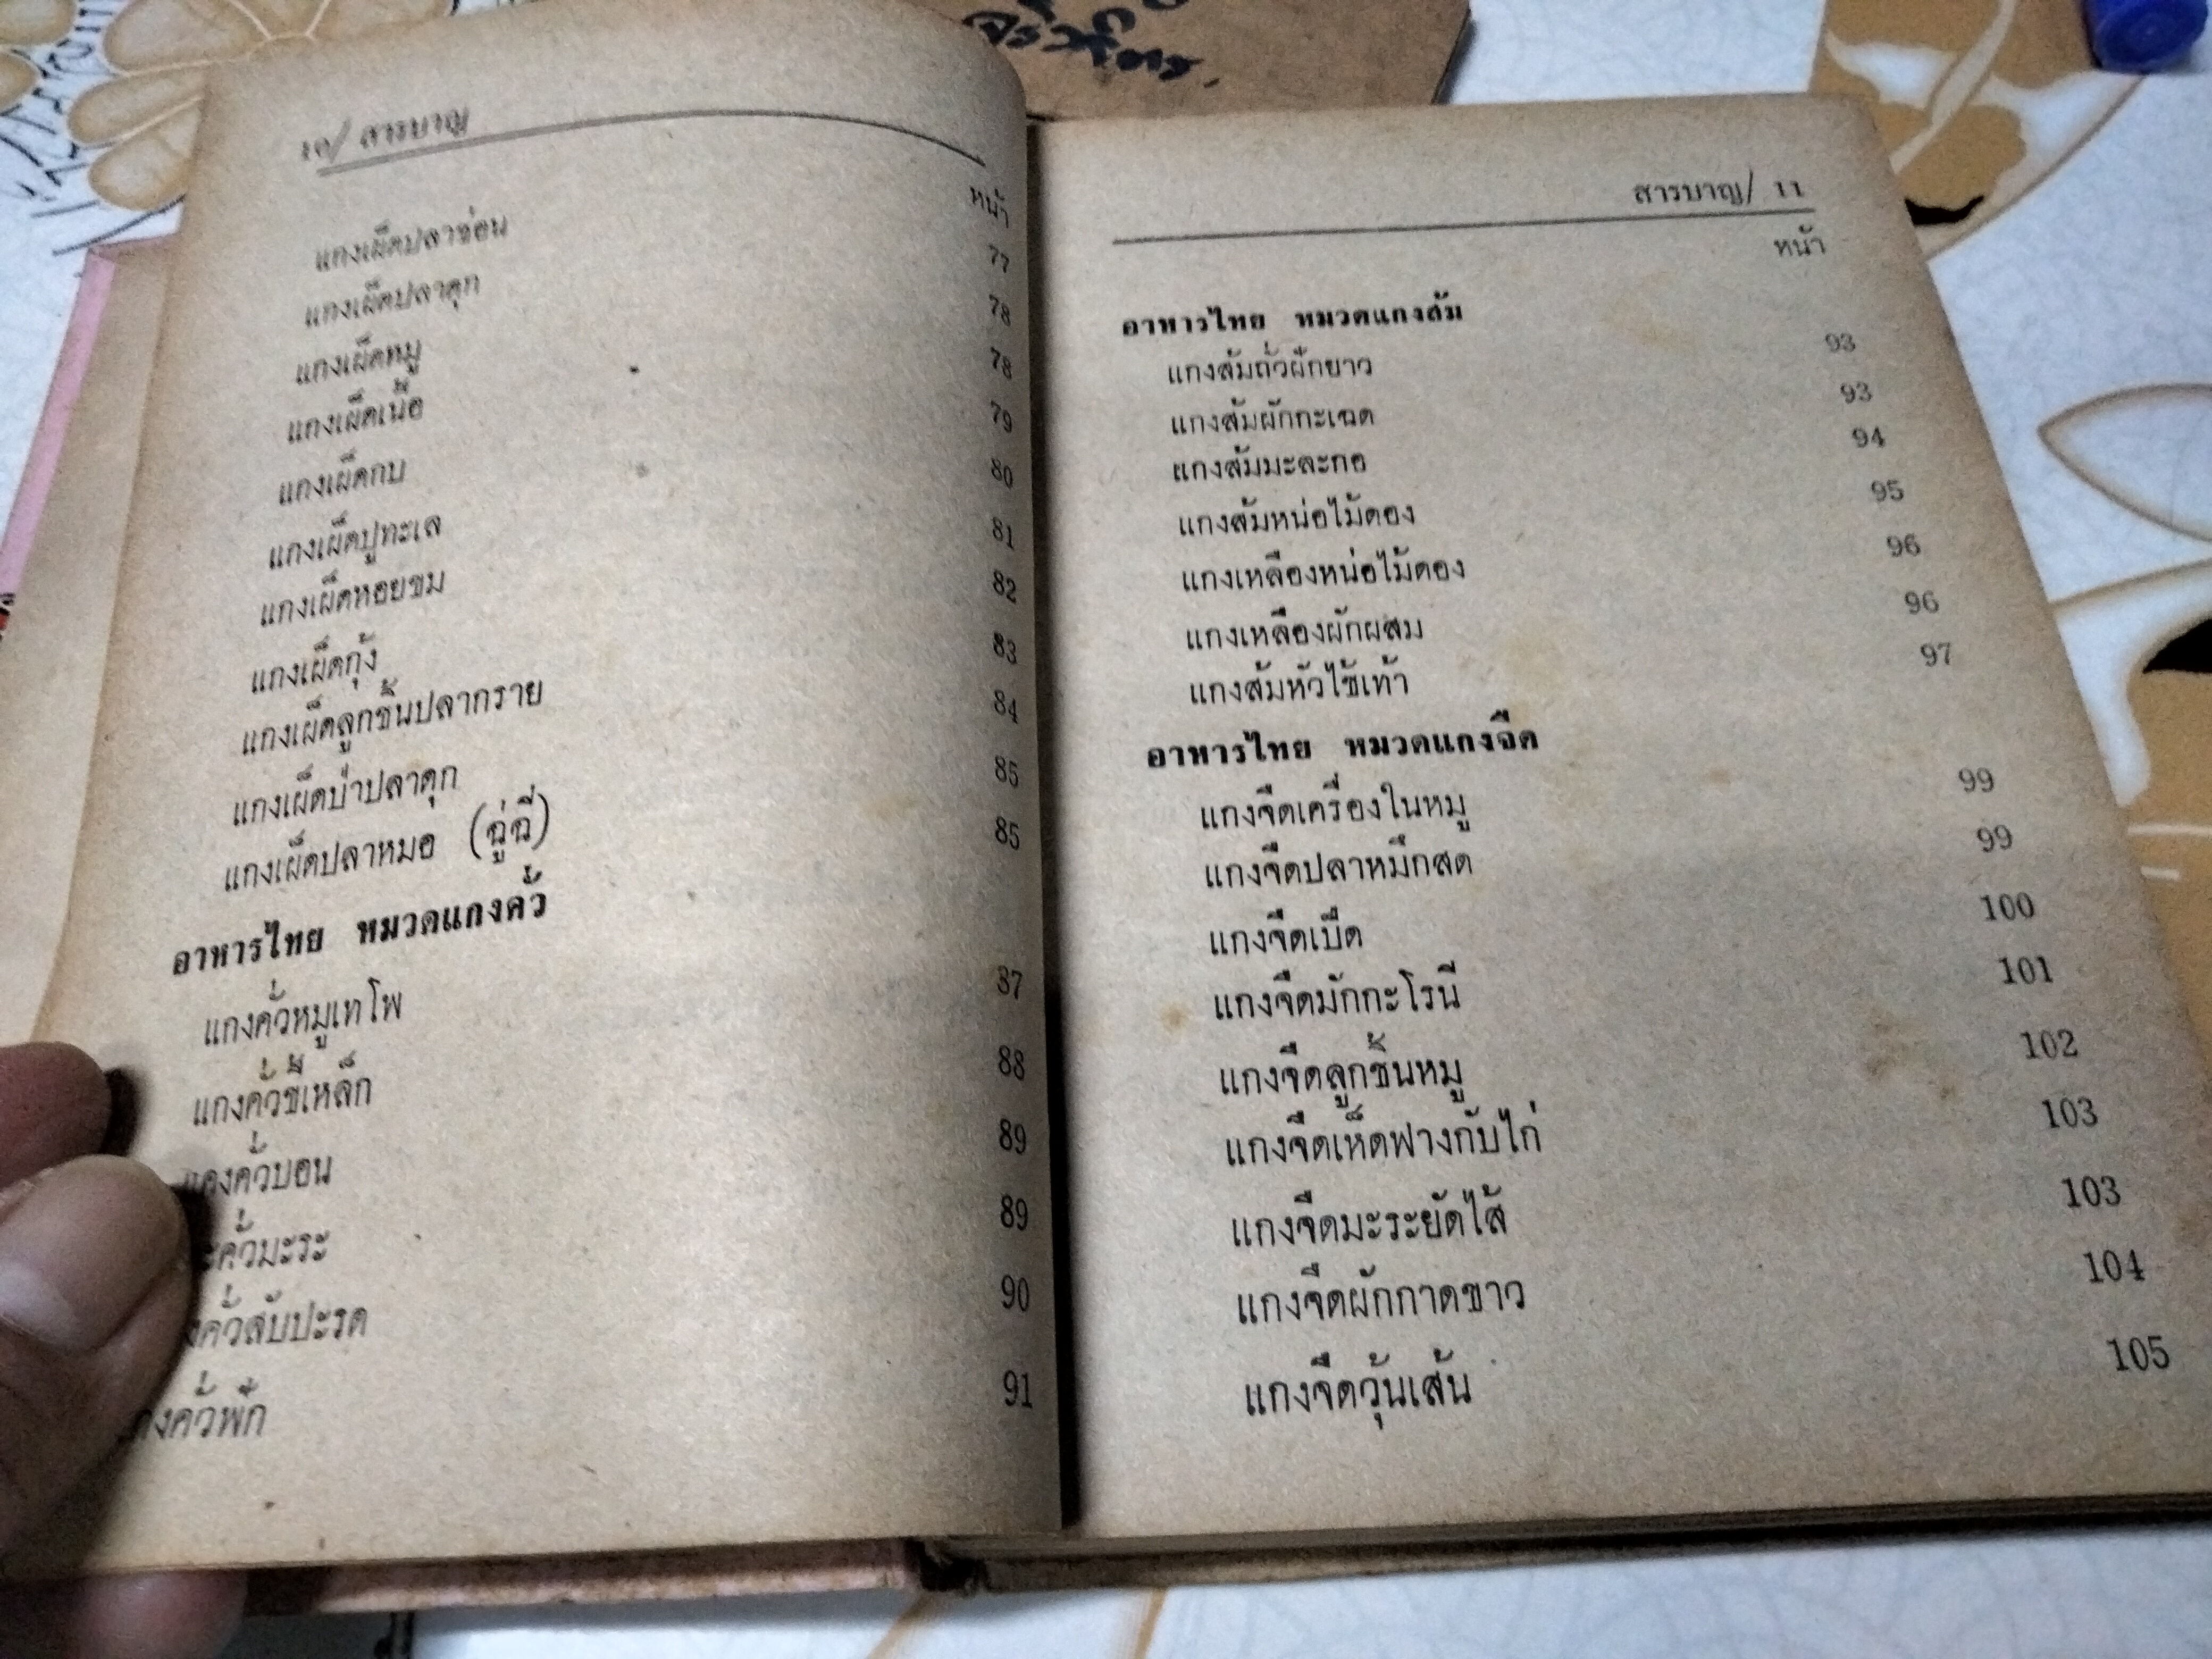 ๑๐/ สารบาญ
หน้า
แกงเผ็ดปลาช่อน 77
แกงเผ็ดปลาดุก 78
แกงเผ็ดหมู 78
แกงเผ็ดเนื้อ 79
แกงเผ็ดกบ 80
แกงเผ็ดปูทะเล 81
แกงเผ็ดหอยขม 82
แกงเผ็ดกุ้ง 83
แกงเผ็ดลูกชิ้นปลากราย 84
แกงเผ็ดป่าปลาดุก 85
แกงเผ็ดปลาหมอ (ฉู่ฉี่) 85
อาหารไทย หมวดแกงคั่ว
แกงคั่วหมูเทโพ 87
แกงคั่วขี้เหล็ก 88
แกงคั่วบอน 89
คั่วมะระ 89
คั่วสับปะรด 90
งคั่วฟัก 91
สารบาญ/ 11
หน้า
อาหารไทย หมวดแกงส้ม
แกงส้มถั่วฝักยาว 93
แกงส้มผักกะเฉด 93
แกงส้มมะละกอ 94
แกงส้มหน่อไม้ดอง 95
แกงเหลืองหน่อไม้ดอง 96
แกงเหลืองผักผสม 96
แกงส้มหัวไช้เท้า 97
อาหารไทย หมวดแกงจืด
แกงจืดเครื่องในหมู 99
แกงจืดปลาหมึกสด 99
แกงจืดเป็ด 100
แกงจืดมักกะโรนี 101
แกงจืดลูกชิ้นหมู 102
แกงจืดเห็ดฟางกับไก่ 103
แกงจืดมะระยัดไส้ 103
แกงจืดผักกาดขาว 104
แกงจืดวุ้นเส้น 105